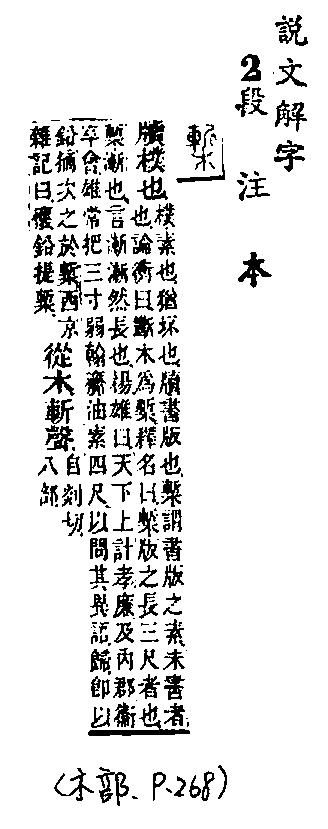 說文解字
2段注本
槧
牘樸也
樸素也猶坯也牘書版也槧謂書版之素未書者
也論衡曰斷木為槧釋名曰槧版之長三尺者也
槧漸也言漸漸然長也揚雄曰天下上計孝廉及内郡衞
卒會雄常把三寸弱翰齎油素四尺以問其異語歸卽以
鉛摘次之於槧西京
雜記曰懷鉛提槧
從木斬聲
自剡切
八部
(木部、P.268)